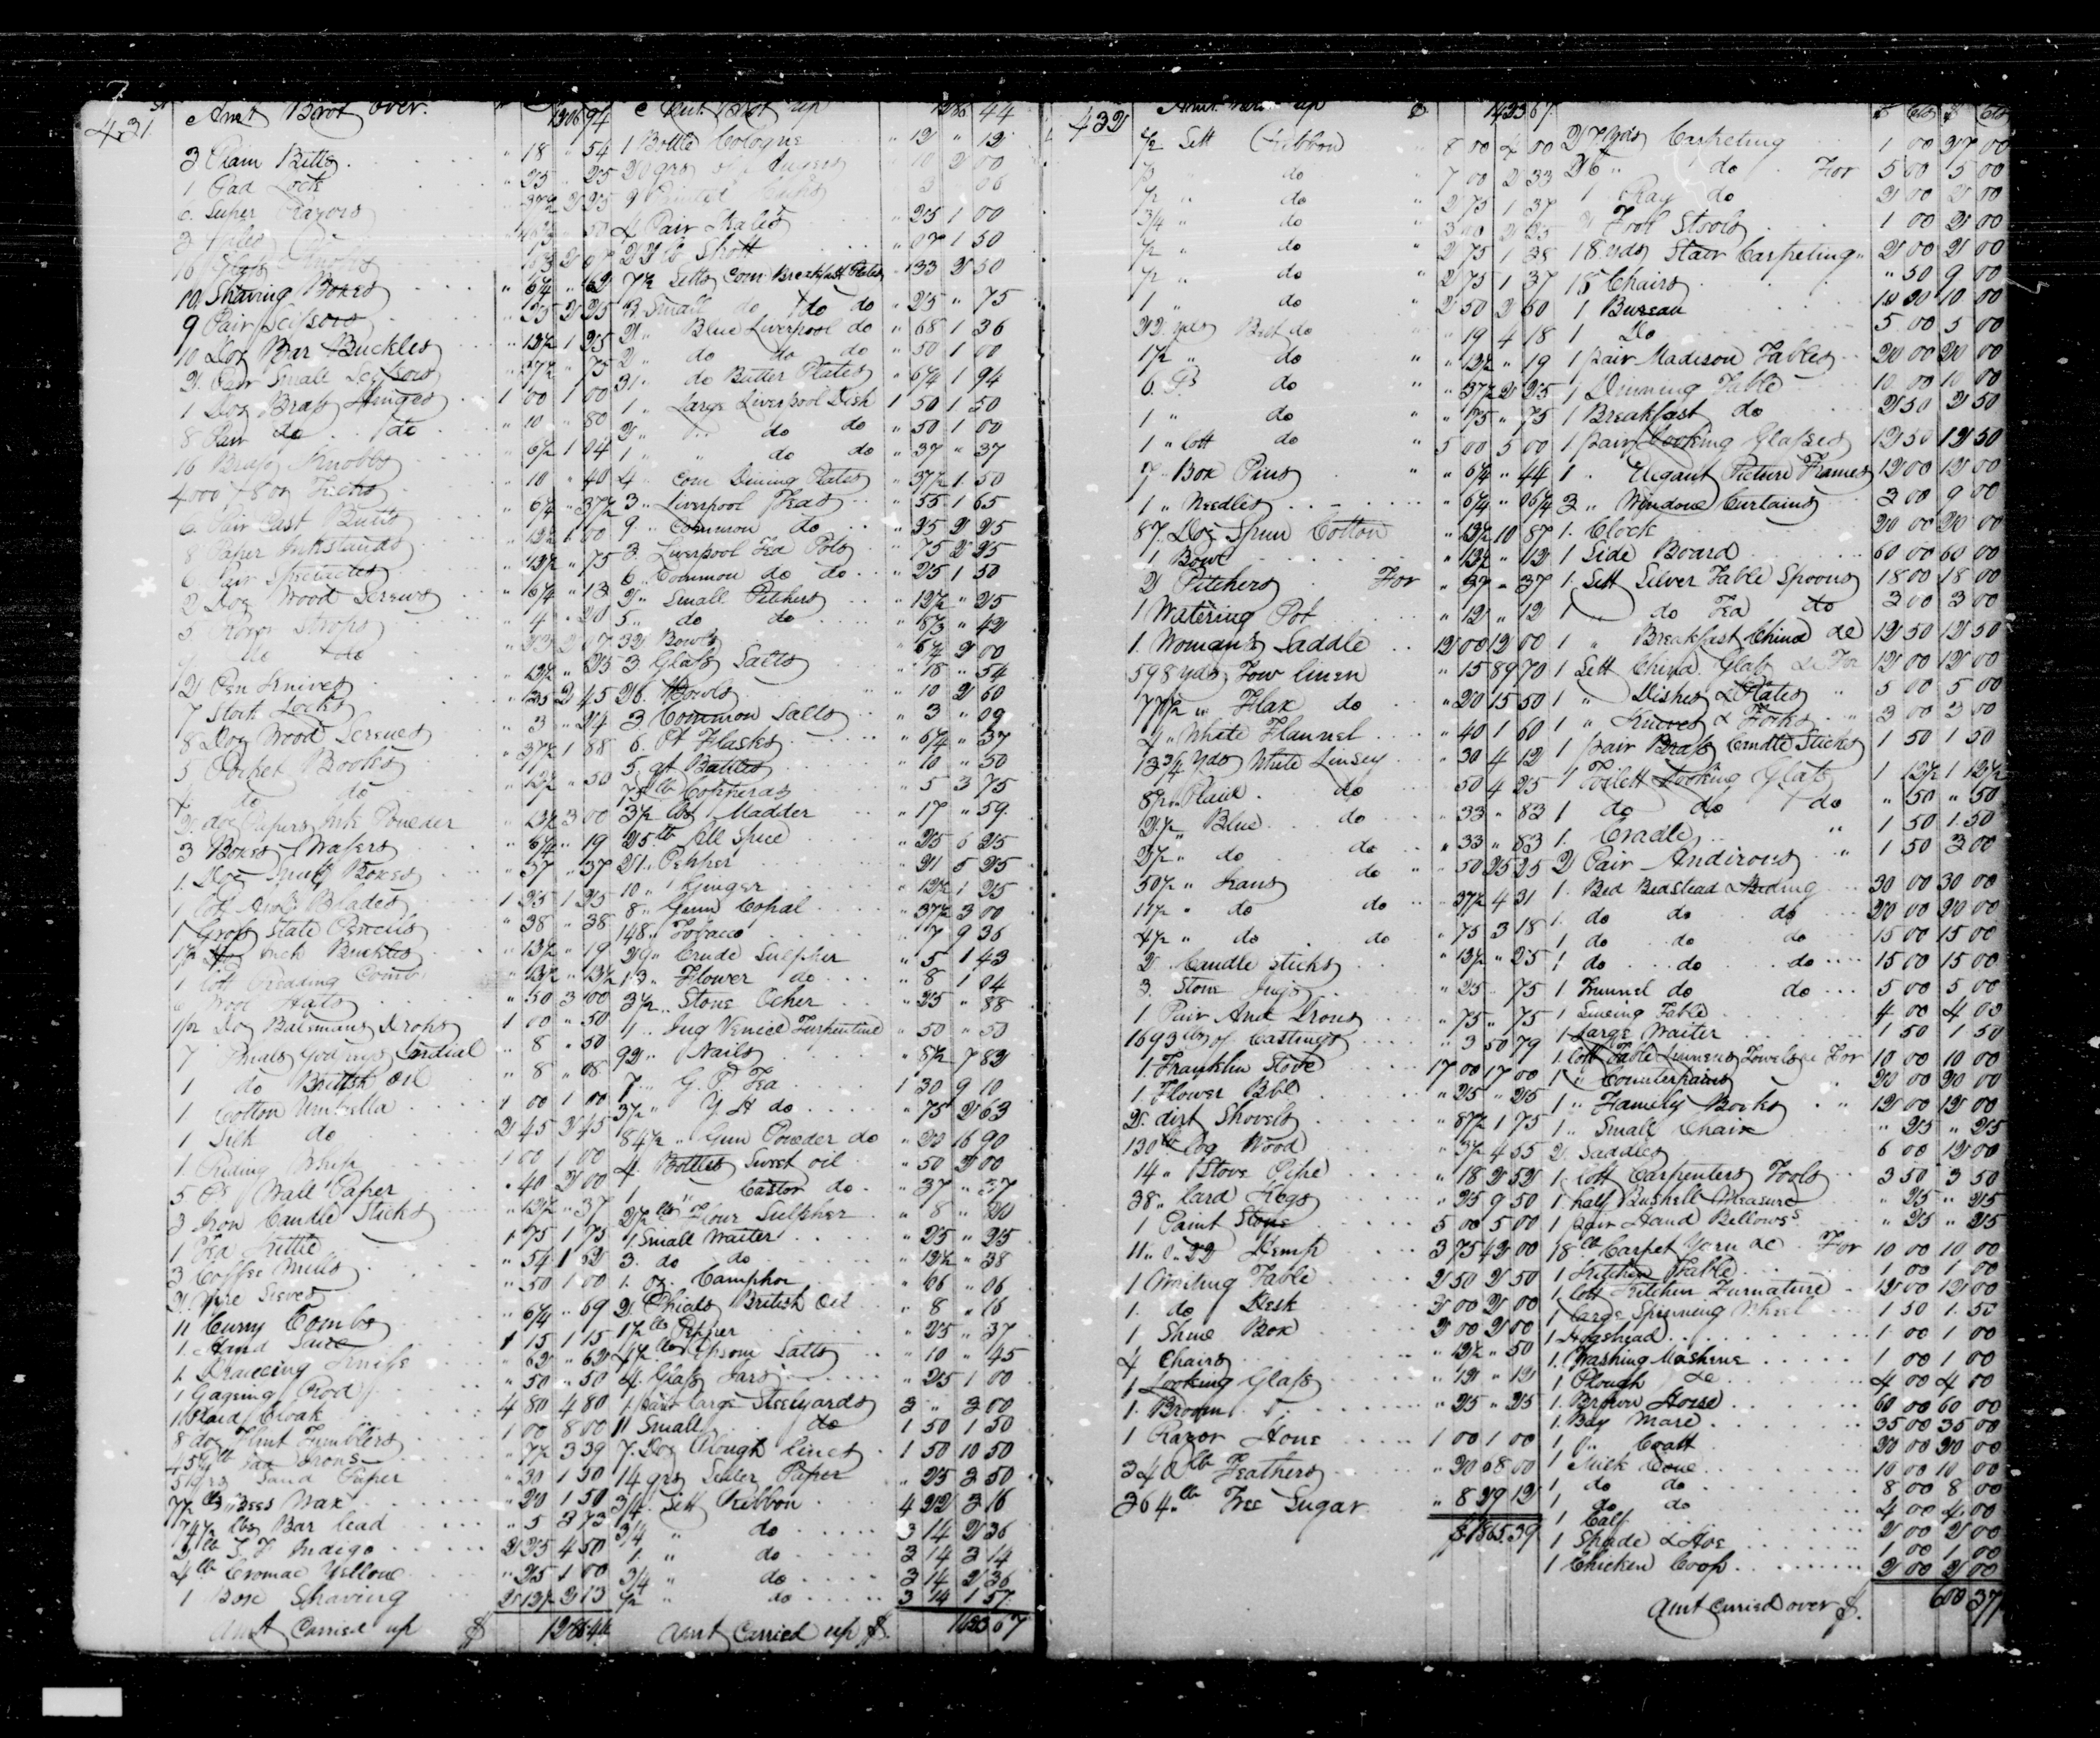 431
Amt Brot over. 1306 94
3 Plain Bitts " 18 " 54
1 Pad Lock " 25 " 25
6 Super Razors " 37½ 2 25
10 Shaving Boxes " 6¼ " 62
9 Pair Scissors " 25 2 25
10 Doz Bar Buckles " 12½ 1 25
2 Pair Small Scissors " 37½ " 75
1 Doz Brass Hinges 1 00 1 00
8 Pair do do " 10 " 80
16 Brass Knobbs " 6½ 1 04
4000 7 8 oz Tacks " 10 " 40
6 Pair Cast Butts " 6¼ " 37½
8 Paper Inkstands " 12½ 1 00
6 Pair Spectacles " 12½ " 75
2 Doz Wood Screws " 6¼ " 13
5 Razor Strops " 4 " 20
9 do do " 23 2 07
2 Pen Knives " 12½ " 25
7 Stock Locks " 35 2 45
8 Doz Wood Screws " 3 " 24
5 Pocket Books " 37½ 1 88
4 do do " 12½ " 50
2 doz Papers Ink Powder " 12½ 3 00
3 Boxes Wafers " 6¼ " 19
1 Doz Snuff Boxes " 37 " 37
1 lott Awl Blades 1 25 1 25
1 Gross Slate Pencils " 38 " 38
1½ Doz Neck Buckles " 12½ " 19
1 lott Redding Comb " 12½ " 12½
6 Wool Hats " 50 3 00
1/2 Doz Batemans Drops 1 00 " 50
7 Phials Godfreys Cordial " 8 " 50
1 do British Oil " 8 " 08
1 Cotton Umbrella 1 00 1 00
1 Silk do 2 45 2 45
1 Riding Whip 1 00 1 00
5 Ps Wall Paper " 40 2 00
3 Iron Candle Sticks " 12½ " 37
1 Tea Kittle 1 75 1 75
3 Coffee Mills " 54 1 62
2 Wire Sieves " 50 1 00
11 Curry Combs " 6¼ " 69
1 Hand Saw 1 15 1 15
1 Drawing Knife " 62 " 62
1 Gageing Rod " 50 " 50
1 Plaid Cloak 4 80 4 80
8 doz Flint Tumblers 1 00 8 00
lb Sad Irons " 7½ 3 39
5 Qrs Sand Paper " 30 1 50
7½ lbs Bees Wax " 20 1 50
74½ lbs Bar lead " 5 3 73
2 lb S. F. Indigo 2 25 4 50
4 lb Cromac Yellow " 25 1 00
1 Box Shaving 2 12½ 2 13
Amt Carried up $ 1286.44
Amt Brot up 1286 44
1 Bottle Cologne " 12 " 12
4 Pair Skates " 25 1 00
22 lb Shott " 07 1 50
7½ Setts Com Breakfast Plates " 33 2 50
3 Small do do do " 25 " 75
2 " Blue Liverpool do " 68 1 36
2 " do do do " 50 1 00
31 " do Butter Plates " 6¼ 1 94
1 " Large Liverpool Dish 1 50 1 50
2 " " do do " 50 1 00
1 " " do do " 37 " 37
4 " Com Dining Plates " 37½ 1 50
3 " Liverpool Teas " 55 1 65
9 " Common do " 25 2 25
3 Liverpool Tea Pots " 75 2 25
6 " Common do do " 25 1 50
2 " Small Pitchers " 12½ " 25
5 " do do " 8⅓ " 42
32 Bowls " 6¼ 2 00
3 Glass Salts " 18 " 54
26 Bowls " 10 2 60
3 Common Salts " 3 " 09
6 Pt Flasks " 6¼ " 37
5 qt Bottles " 10 " 50
75 lb Copperas " 5 3 75
3½ lbs Madder " 17 " 59
25 lb All Spice " 25 6 25
21 " Pepper " 25 5 25
10 " Ginger " 12½ 1 25
8 " Gum Copal " 37½ 3 00
148 " Tobacco " 7 9 36
29 " Crude Sulpher " 5 1 43
13 " Flower do " 8 1 04
3½ " Stone Ocher " 25 " 88
1 " Jug Venice Turpentine " 50 " 50
92 " Nails " 8½ 7 82
7 " G. P. Tea 1 30 9 10
3½ " Y. H do " 75 2 63
84½ " Gun Powder do " 20 16 90
4 Bottles Sweet oil " 50 2 00
1 " Castor do " 37 " 37
2½ lbs Flour Sulpher " 8 " 20
1 Small Waiter " 25 " 25
3 do do " 12½ " 38
1 oz Camphor " 06 " 06
2 Phials British Oil " 8 " 16
1½ lbs Pepper " 25 " 37
4½ lbs Epsom Salts " 10 " 45
4 Glass Jars " 25 1 00
1 pair large Steelyards 3 " 3 00
1 Small do 1 50 1 50
7 Doz Plough Lines 1 50 10 50
14 qrs Letter Paper " 25 3 50
3/4 Sett Ribbon 4 22 3 16
3/4 " do 3 14 2 36
1 " do 3 14 3 14
3/4 " do 3 14 2 36
½ " do 3 14 1 57
Amt Carried up $ 1423 67
432
Amt Brot up $ 1423 67
½ Sett Ribbon " 8 00 4 00
" do " 7 00 2 33
½ " do " 2 75 1 37
3/4 " do " 3 00 2 25
½ " do " 2 75 1 38
½ " do " 2 75 1 37
1 " do " 2 50 2 50
22 yds Belt do " 19 4 18
1½ " do " 12½ " 19
6 Ps do " 37½ 2 25
1 " do " 75 " 75
1 " lott do " 5 00 5 00
7 " Box Pins " 6¼ " 44
1 " Needles " 6¼ " 06¼
87 Doz Spun Cotton " 12½ 10 87
1 Bowl " 12½ " 12
2 Pitchers For " 37 " 37
1 Watering Pot " 12 " 12
1 Woman's Saddle 12 00 12 00
598 yds Tow linen " 15 89 70
77½ " Flax do " 20 15 50
4 " White Flannel " 40 1 60
13¾ yds White Linsey " 30 4 12
8½ " Plaid do 50 4 25
2½ " Blue do " 33 " 83
2½ " do do " 33 " 83
50½ " Jeans do " 50 25 25
11½ " do do " 37½ 4 31
4½ " do do " 75 3 18
2 Candle Sticks " 12½ " 25
3 Stone Jugs " 25 " 75
1 Pair And Irons " 75 " 75
1693 lbs of Castings " 3 50 79
1 Franklin Stove 17 00 17 00
1 Flower Bbl " 25 " 25
2 dirt Shovels " 87½ 1 75
130 lb Log Wood " 3½ 4 55
14 " Stove Pipe " 18 2 52
38 " Lard Kegs " 25 9 50
1 Paint Stone 5 00 5 00
11 " 0 " 22 Hemp 3 75 42 00
1 Writing Table 2 50 2 50
1 do Desk 2 00 2 00
1 Shew Box 2 00 2 00
4 Chairs " 12½ " 50
1 Looking Glass " 12 " 12
1 Broom " 25 " 25
1 Razor Hone 1 00 1 00
340 lb Feathers " 20 68 00
364 lb Tree Sugar " 8 29 12
$1865.39
$ Cts $ Cts
27 yds Carpeting 1 00 27 00
26 " do For 5 00 5 00
1 Rag do 2 00 2 00
2 Foot Stools 1 00 2 00
18 yds Stair Carpeting " 2 00 2 00
18 Chairs " 50 9 00
1 Bureau 10 00 10 00
1 Do 5 00 5 00
1 pair Madison Tables 20 00 20 00
1 Dinning Table 10 00 10 00
1 Breakfast do 2 50 2 50
1 pair Looking Glasses 12 50 12 50
1 " Elegant Picture Frames 12 00 12 00
3 " Window Curtains 3 00 9 00
1 Clock 20 00 20 00
1 Side Board 60 00 60 00
1 Sett Silver Table Spoons 18 00 18 00
1 do Tea do 3 00 3 00
1 " Breakfast China &c 12 50 12 50
1 Sett China Glass &c For 12 00 12 00
1 " Dishes & Plates " 5 00 5 00
1 " Knives & Forks " 3 00 3 00
1 pair Brass Candle Sticks 1 50 1 50
1 Toilett Looking Glass 1 12½ 1 12½
1 do do do " 50 " 50
1 Cradle " 1 50 1 50
2 Pair Andirons " 1 50 3 00
1 Bed Bedstead & Beding 30 00 30 00
1 do do do 20 00 20 00
1 do do do 15 00 15 00
1 do do do 15 00 15 00
1 Trunnel do do 5 00 5 00
1 Dineing Table 4 00 4 00
1 large Waiter 1 50 1 50
1 lott Table Linnens Towels &c For 10 00 10 00
1 " Counterpains " 20 00 20 00
1 " Family Books " 12 00 12 00
1 " Small Chair " 25 " 25
2 Saddles 6 00 12 00
1 lott Carpenters Tools 3 50 3 50
1 half Bushell Measure " 25 " 25
1 pair Hand Bellows " 25 " 25
18 lb Carpet Yarn &c For 10 00 10 00
1 Kitchen Table 1 00 1 00
1 lott Kitchen Furnature 12 00 12 00
1 large Spinning Wheel 1 50 1 50
1 Hogshead 1 00 1 00
1 Washing Mashene 1 00 1 00
1 Plough &c 4 00 4 00
1 Brown Horse 60 00 60 00
1 Bay Mare 35 00 35 00
1 " Coalt 20 00 20 00
1 Milk Cow 10 00 10 00
1 do do 8 00 8 00
1 do do 4 00 4 00
1 Calf 2 00 2 00
1 Spade & Axe 1 00 1 00
1 Chicken Coop 2 00 2 00
Amt Carried over $ 600 37